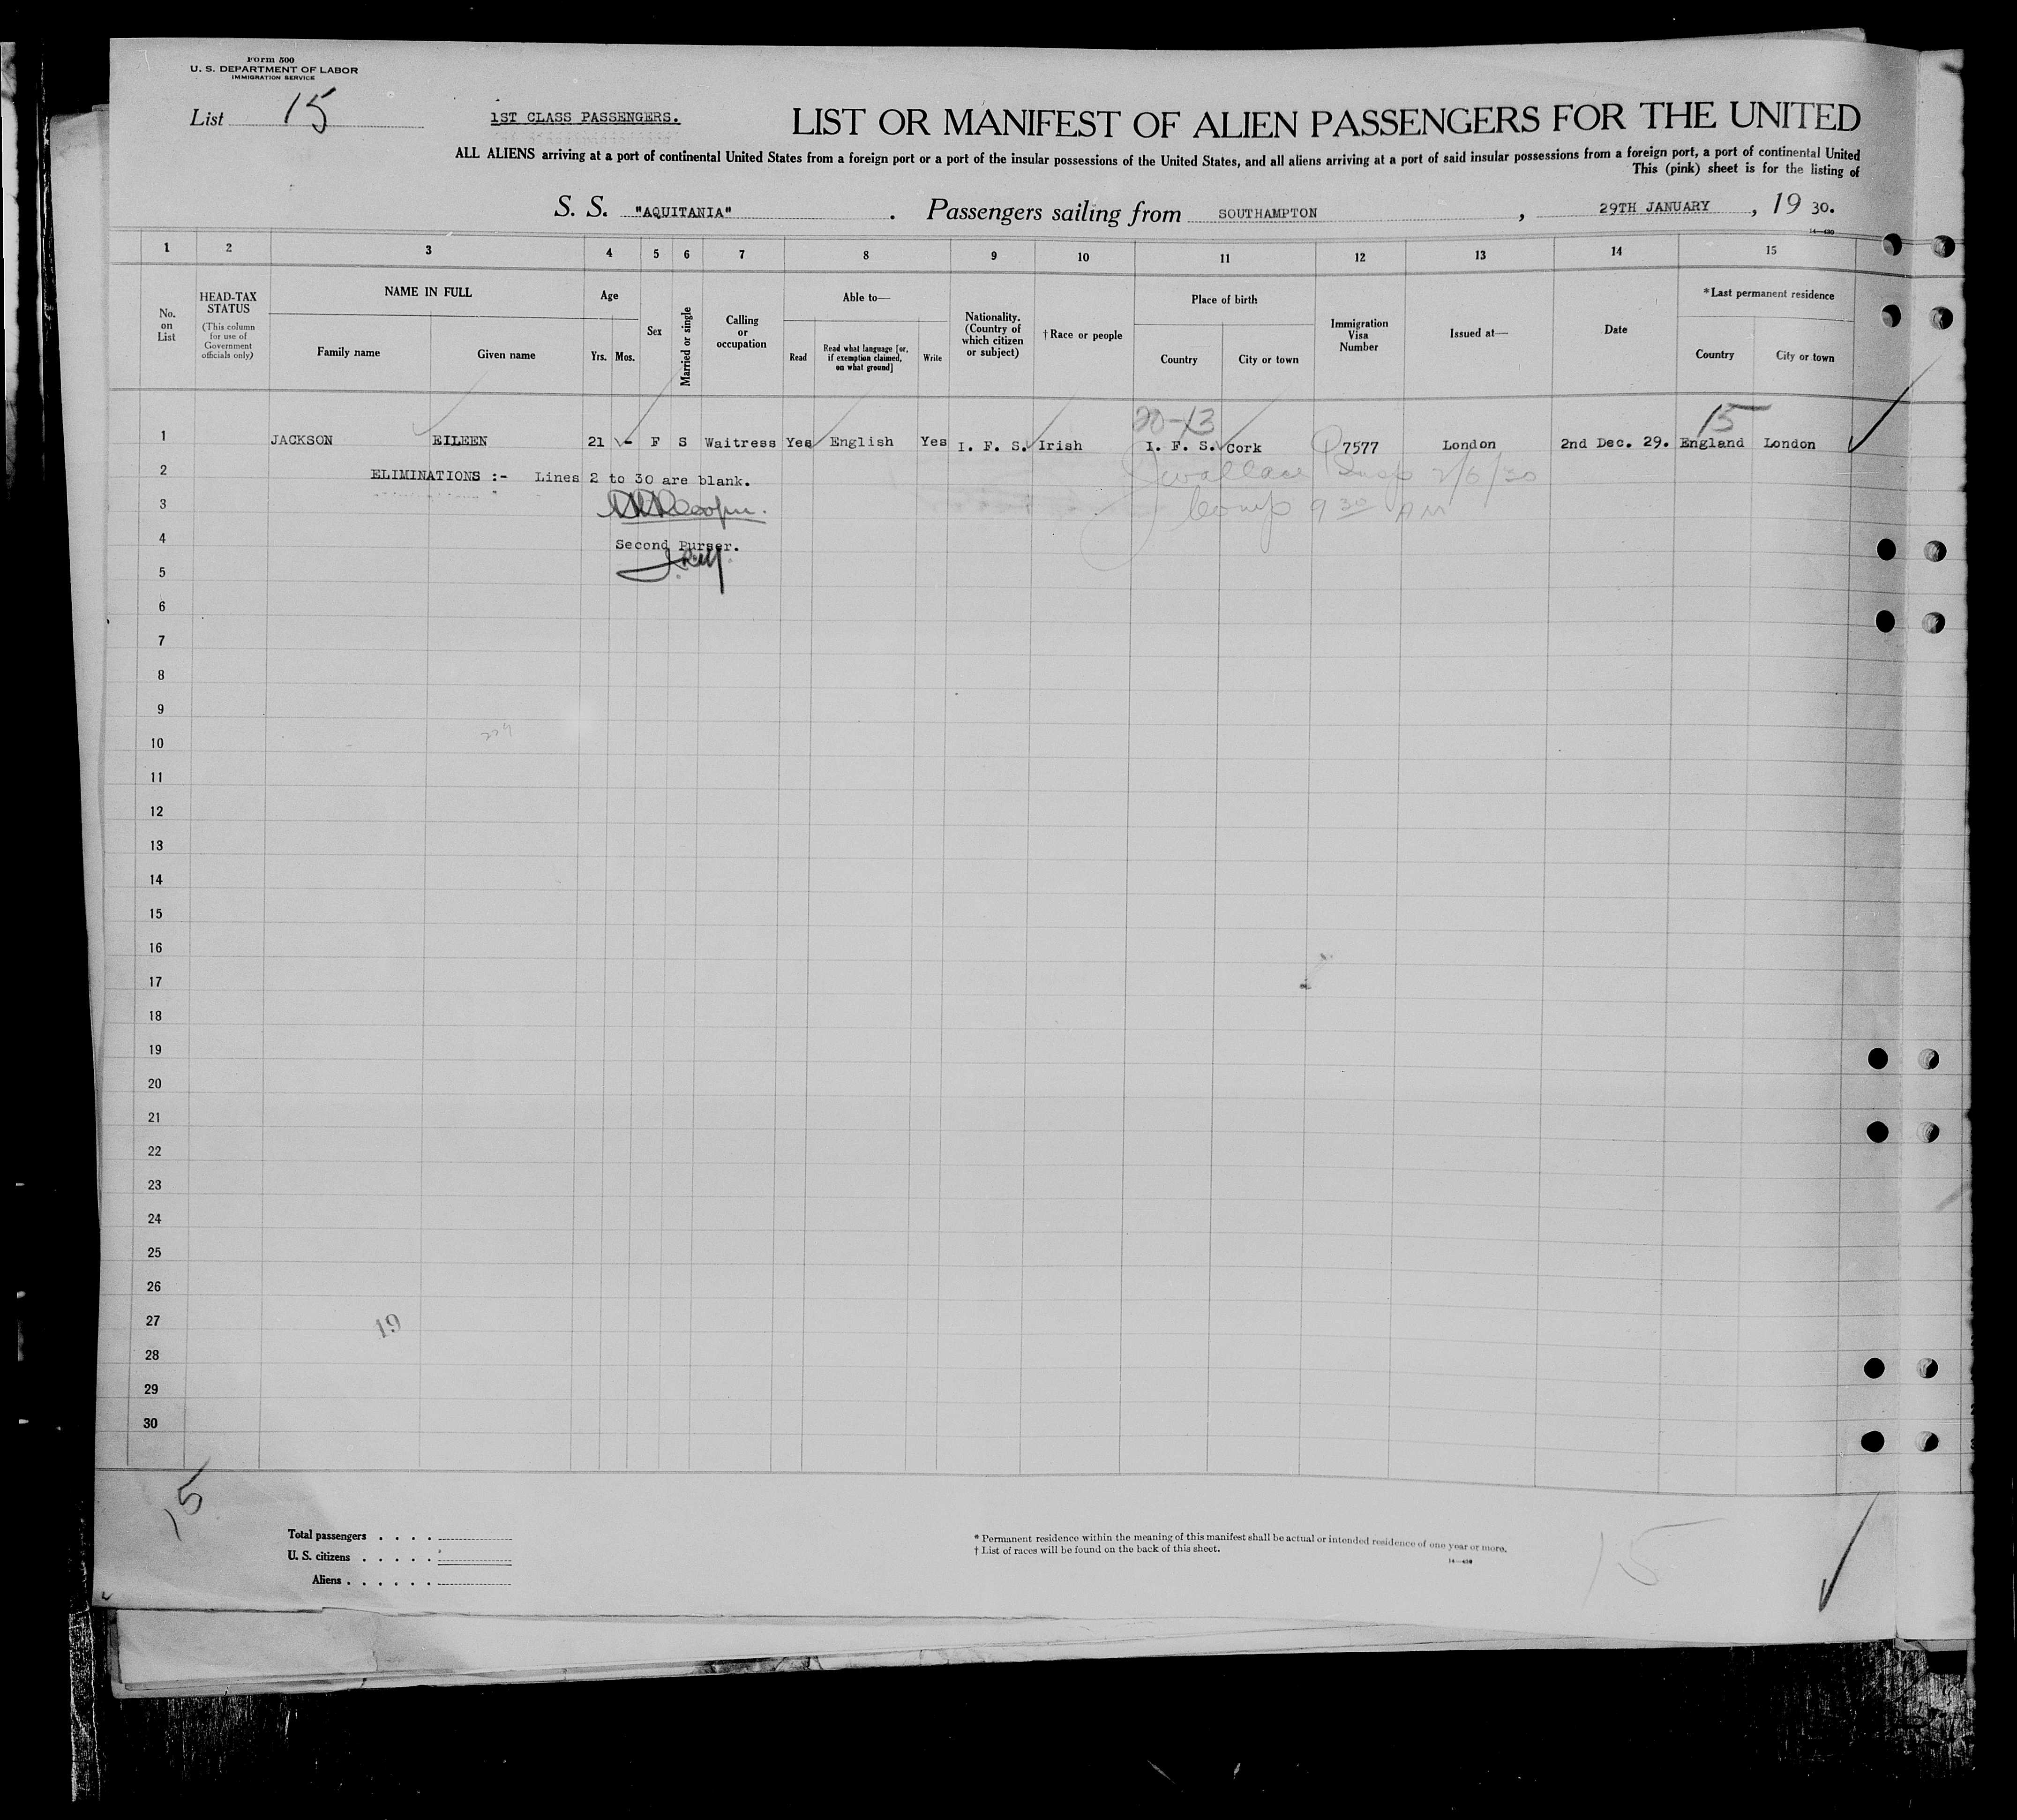 Form 500
U. S. DEPARTMENT OF LABOR
IMMIGRATION SERVICE
List 15
1ST CLASS PASSENGERS.
LIST OR MANIFEST OF ALIEN PASSENGERS FOR THE UNITED
ALL ALIENS arriving at a port of continental United States from a foreign port or a port of the insular possessions of the United States, and all aliens arriving at a port of said insular possessions from a foreign port, a port of continental United
This (pink) sheet is for the listing of
S. S. "AQUITANIA" . Passengers sailing from SOUTHAMPTON , 29TH JANUARY , 19 30.
14—430
1 2 3 4 5 6 7 8 9 10 11 12 13 14 15
No. on List
HEAD-TAX STATUS
(This column for use of Government officials only)
NAME IN FULL
Family name Given name
Age
Yrs. Mos.
Sex
Married or single
Calling or occupation
Able to—
Read
Read what language [or, if exemption claimed, on what ground]
Write
Nationality. (Country of which citizen or subject)
† Race or people
Place of birth
Country City or town
Immigration Visa Number
Issued at—
Date
* Last permanent residence
Country City or town
20-13 15
1 JACKSON EILEEN 21 - F S Waitress Yes English Yes I. F. S. Irish I. F. S. Cork 7577 London 2nd Dec. 29. England London
2 ELIMINATIONS :- Lines 2 to 30 are blank. Wallace Insp 2/6/30
3 Cooper. Comp 9 30 AM
4 Second Purser.
5
6
7
8
9
10
11
12
13
14
15
16
17
18
19
20
21
22
23
24
25
26
27
19
28
29
30
15
Total passengers . . . .
U. S. citizens . . . . .
Aliens . . . . . .
* Permanent residence within the meaning of this manifest shall be actual or intended residence of one year or more.
† List of races will be found on the back of this sheet.
14—430
15